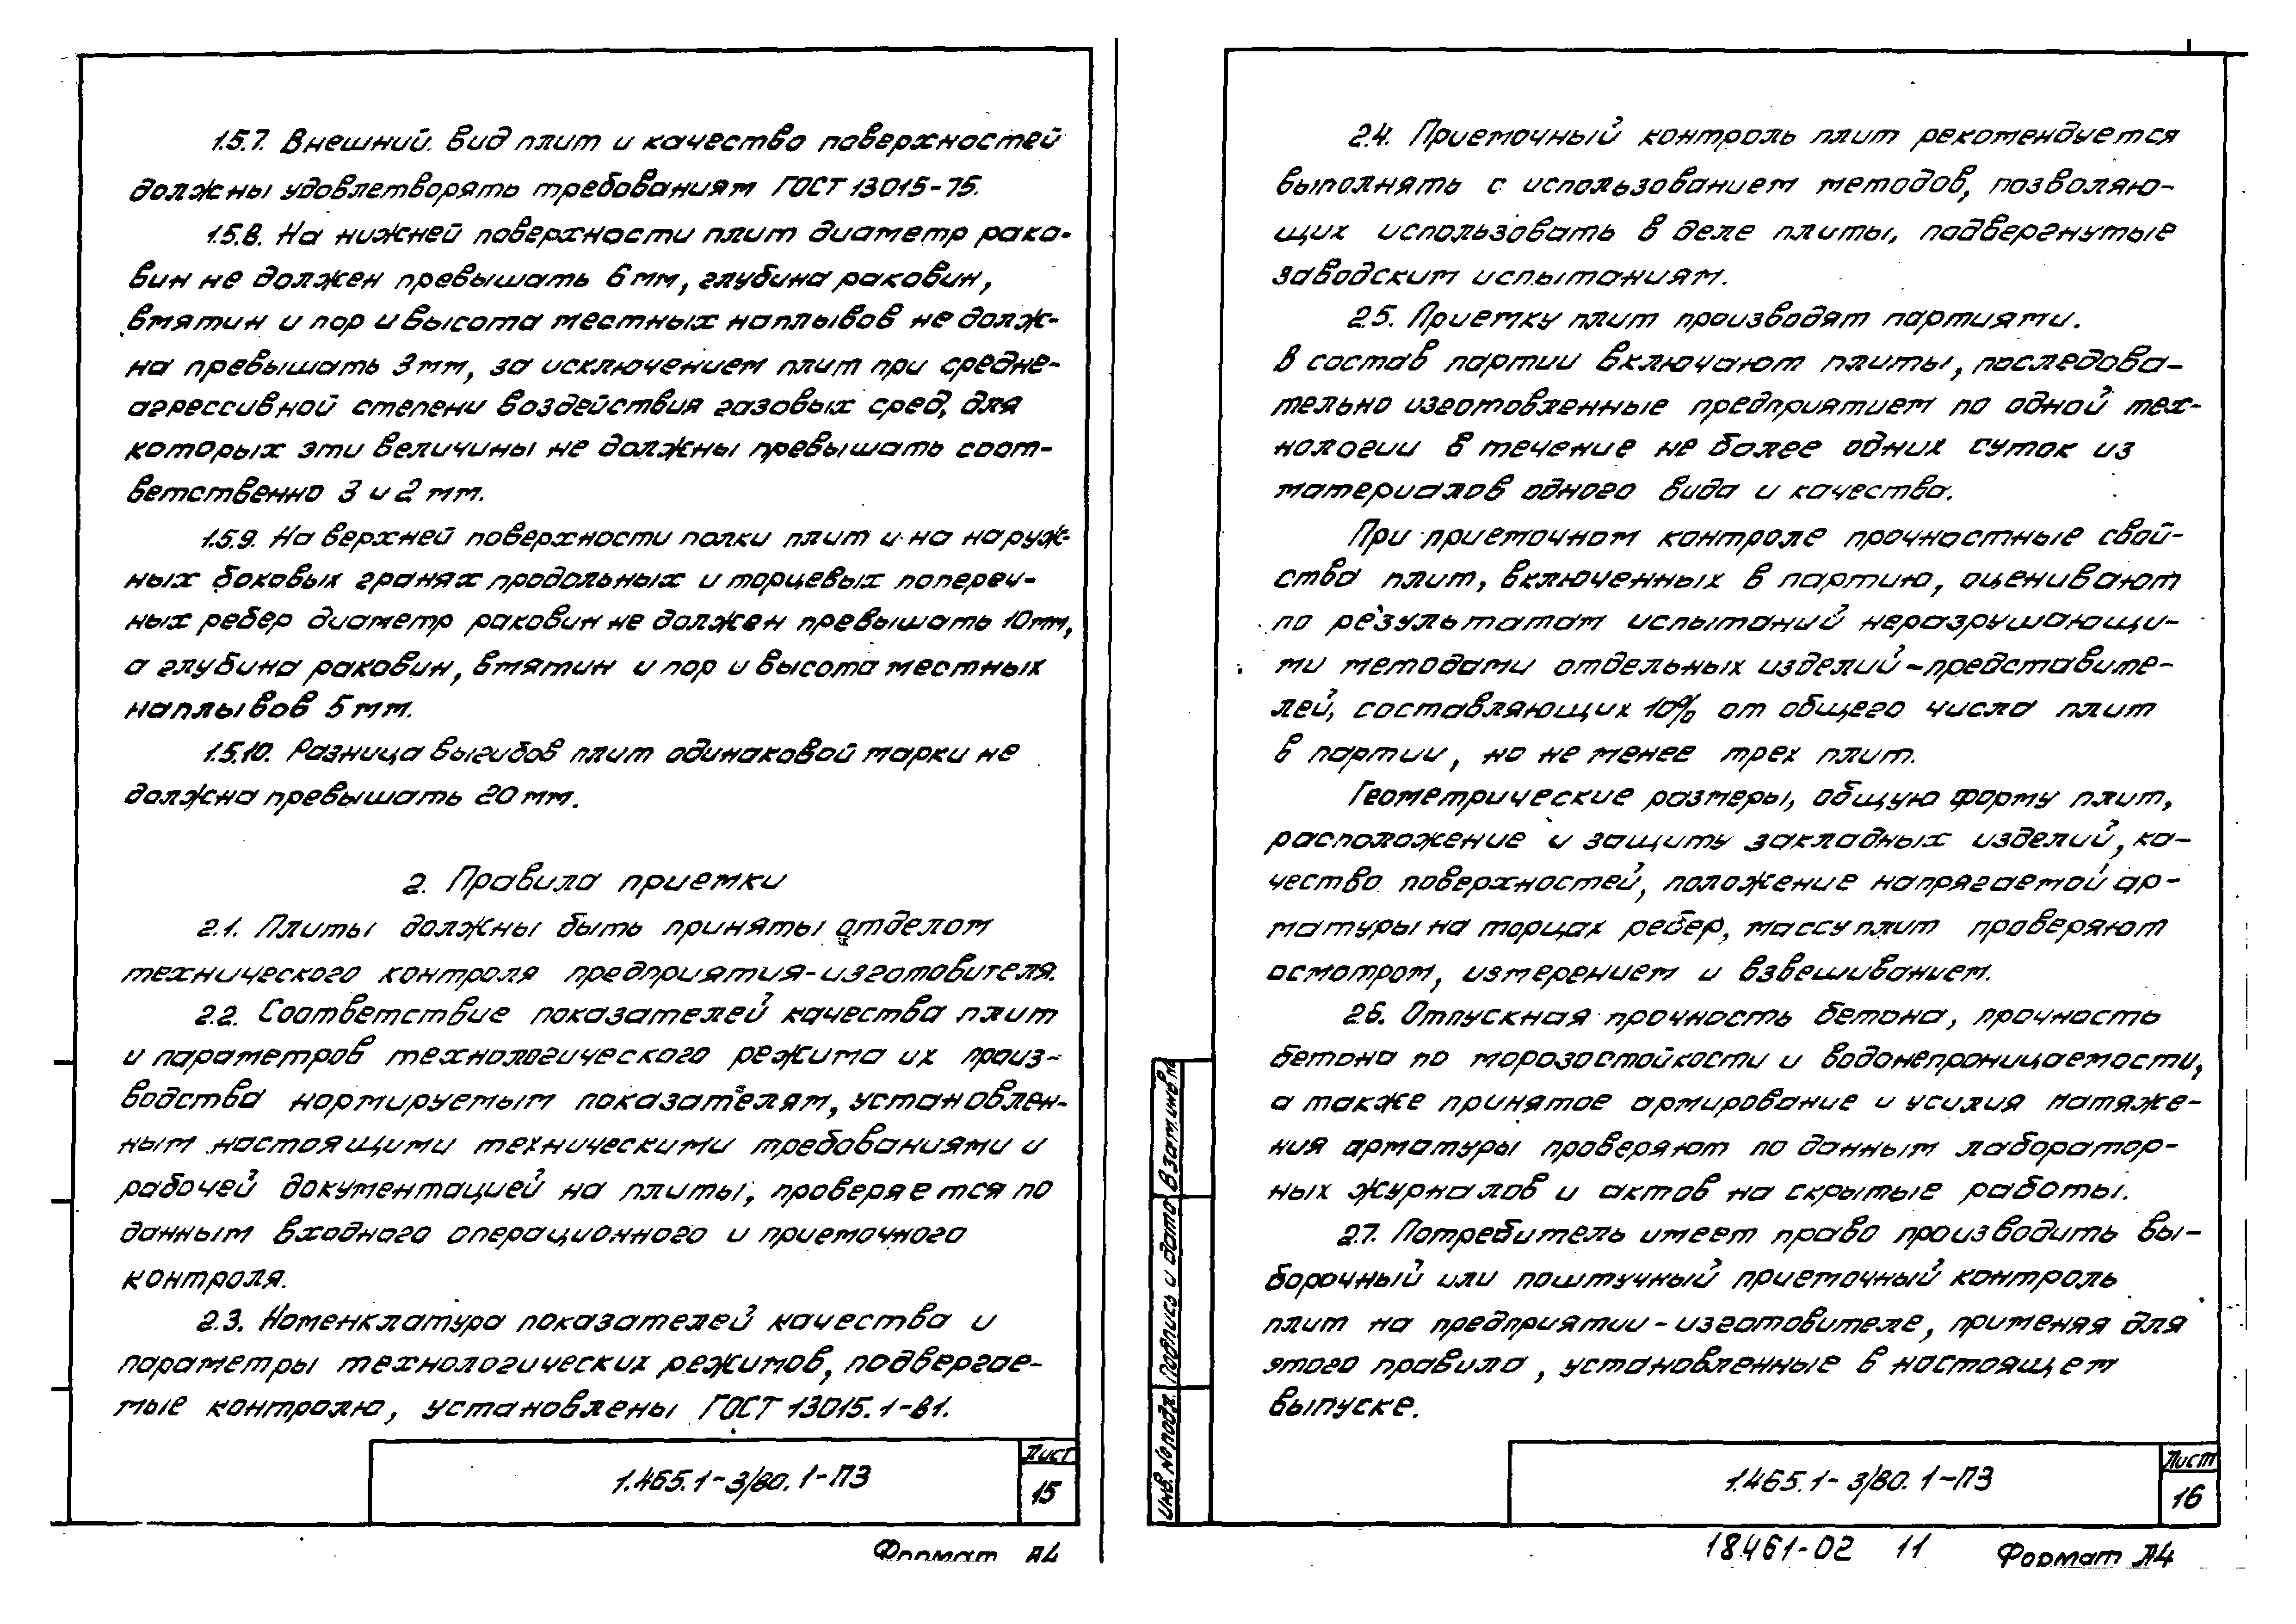 1.5.7. Внешний вид плит и качество поверхностей
должны удовлетворять требованиям ГОСТ 13015-75.
1.5.8. На нижней поверхности плит диаметр рако-
вин не должен превышать 6 мм, глубина раковин,
вмятин и пор и высота местных наплывов не долж-
на превышать 3 мм, за исключением плит при средне-
агрессивной степени воздействия газовых сред, для
которых эти величины не должны превышать соот-
ветственно 3 и 2 мм.
1.5.9. На верхней поверхности полки плит и на наруж-
ных боковых гранях продольных и торцевых попереч-
ных ребер диаметр раковин не должен превышать 10 мм,
а глубина раковин, вмятин и пор и высота местных
наплывов 5 мм.
1.5.10. Разница выгибов плит одинаковой марки не
должна превышать 20 мм.
2. Правила приемки
2.1. Плиты должны быть приняты отделом
технического контроля предприятия-изготовителя.
2.2. Соответствие показателей качества плит
и параметров технологического режима их произ-
водства нормируемым показателям, установлен-
ным настоящими техническими требованиями и
рабочей документацией на плиты, проверяется по
данным входного операционного и приемочного
контроля.
2.3. Номенклатура показателей качества и
параметры технологических режимов, подвергае-
мые контролю, установлены ГОСТ 13015.1-81.
1.465.1-3/80.1-ПЗ
Лист
15
Формат А4
2.4. Приемочный контроль плит рекомендуется
выполнять с использованием методов, позволяю-
щих использовать в деле плиты, подвергнутые
заводским испытаниям.
2.5. Приемку плит производят партиями.
В состав партии включают плиты, последова-
тельно изготовленные предприятием по одной тех-
нологии в течение не более одних суток из
материалов одного вида и качества.
При приемочном контроле прочностные свой-
ства плит, включенных в партию, оценивают
по результатам испытаний неразрушающи-
ми методами отдельных изделий-представите-
лей, составляющих 10% от общего числа плит
в партии, но не менее трех плит.
Геометрические размеры, общую форму плит,
расположение и защиту закладных изделий, ка-
чество поверхностей, положение напрягаемой ар-
матуры на торцах ребер, массу плит проверяют
осмотром, измерением и взвешиванием.
2.6. Отпускная прочность бетона, прочность
бетона по морозостойкости и водонепроницаемости,
а также принятое армирование и усилия натяже-
ния арматуры проверяют по данным лаборатор-
ных журналов и актов на скрытые работы.
2.7. Потребитель имеет право производить вы-
борочный или поштучный приемочный контроль
плит на предприятии-изготовителе, применяя для
этого правила, установленные в настоящем
выпуске.
Инв. № подл. Подпись и дата Взам. инв. №
1.465.1-3/80.1-ПЗ
Лист
16
18461-02 11 Формат А4